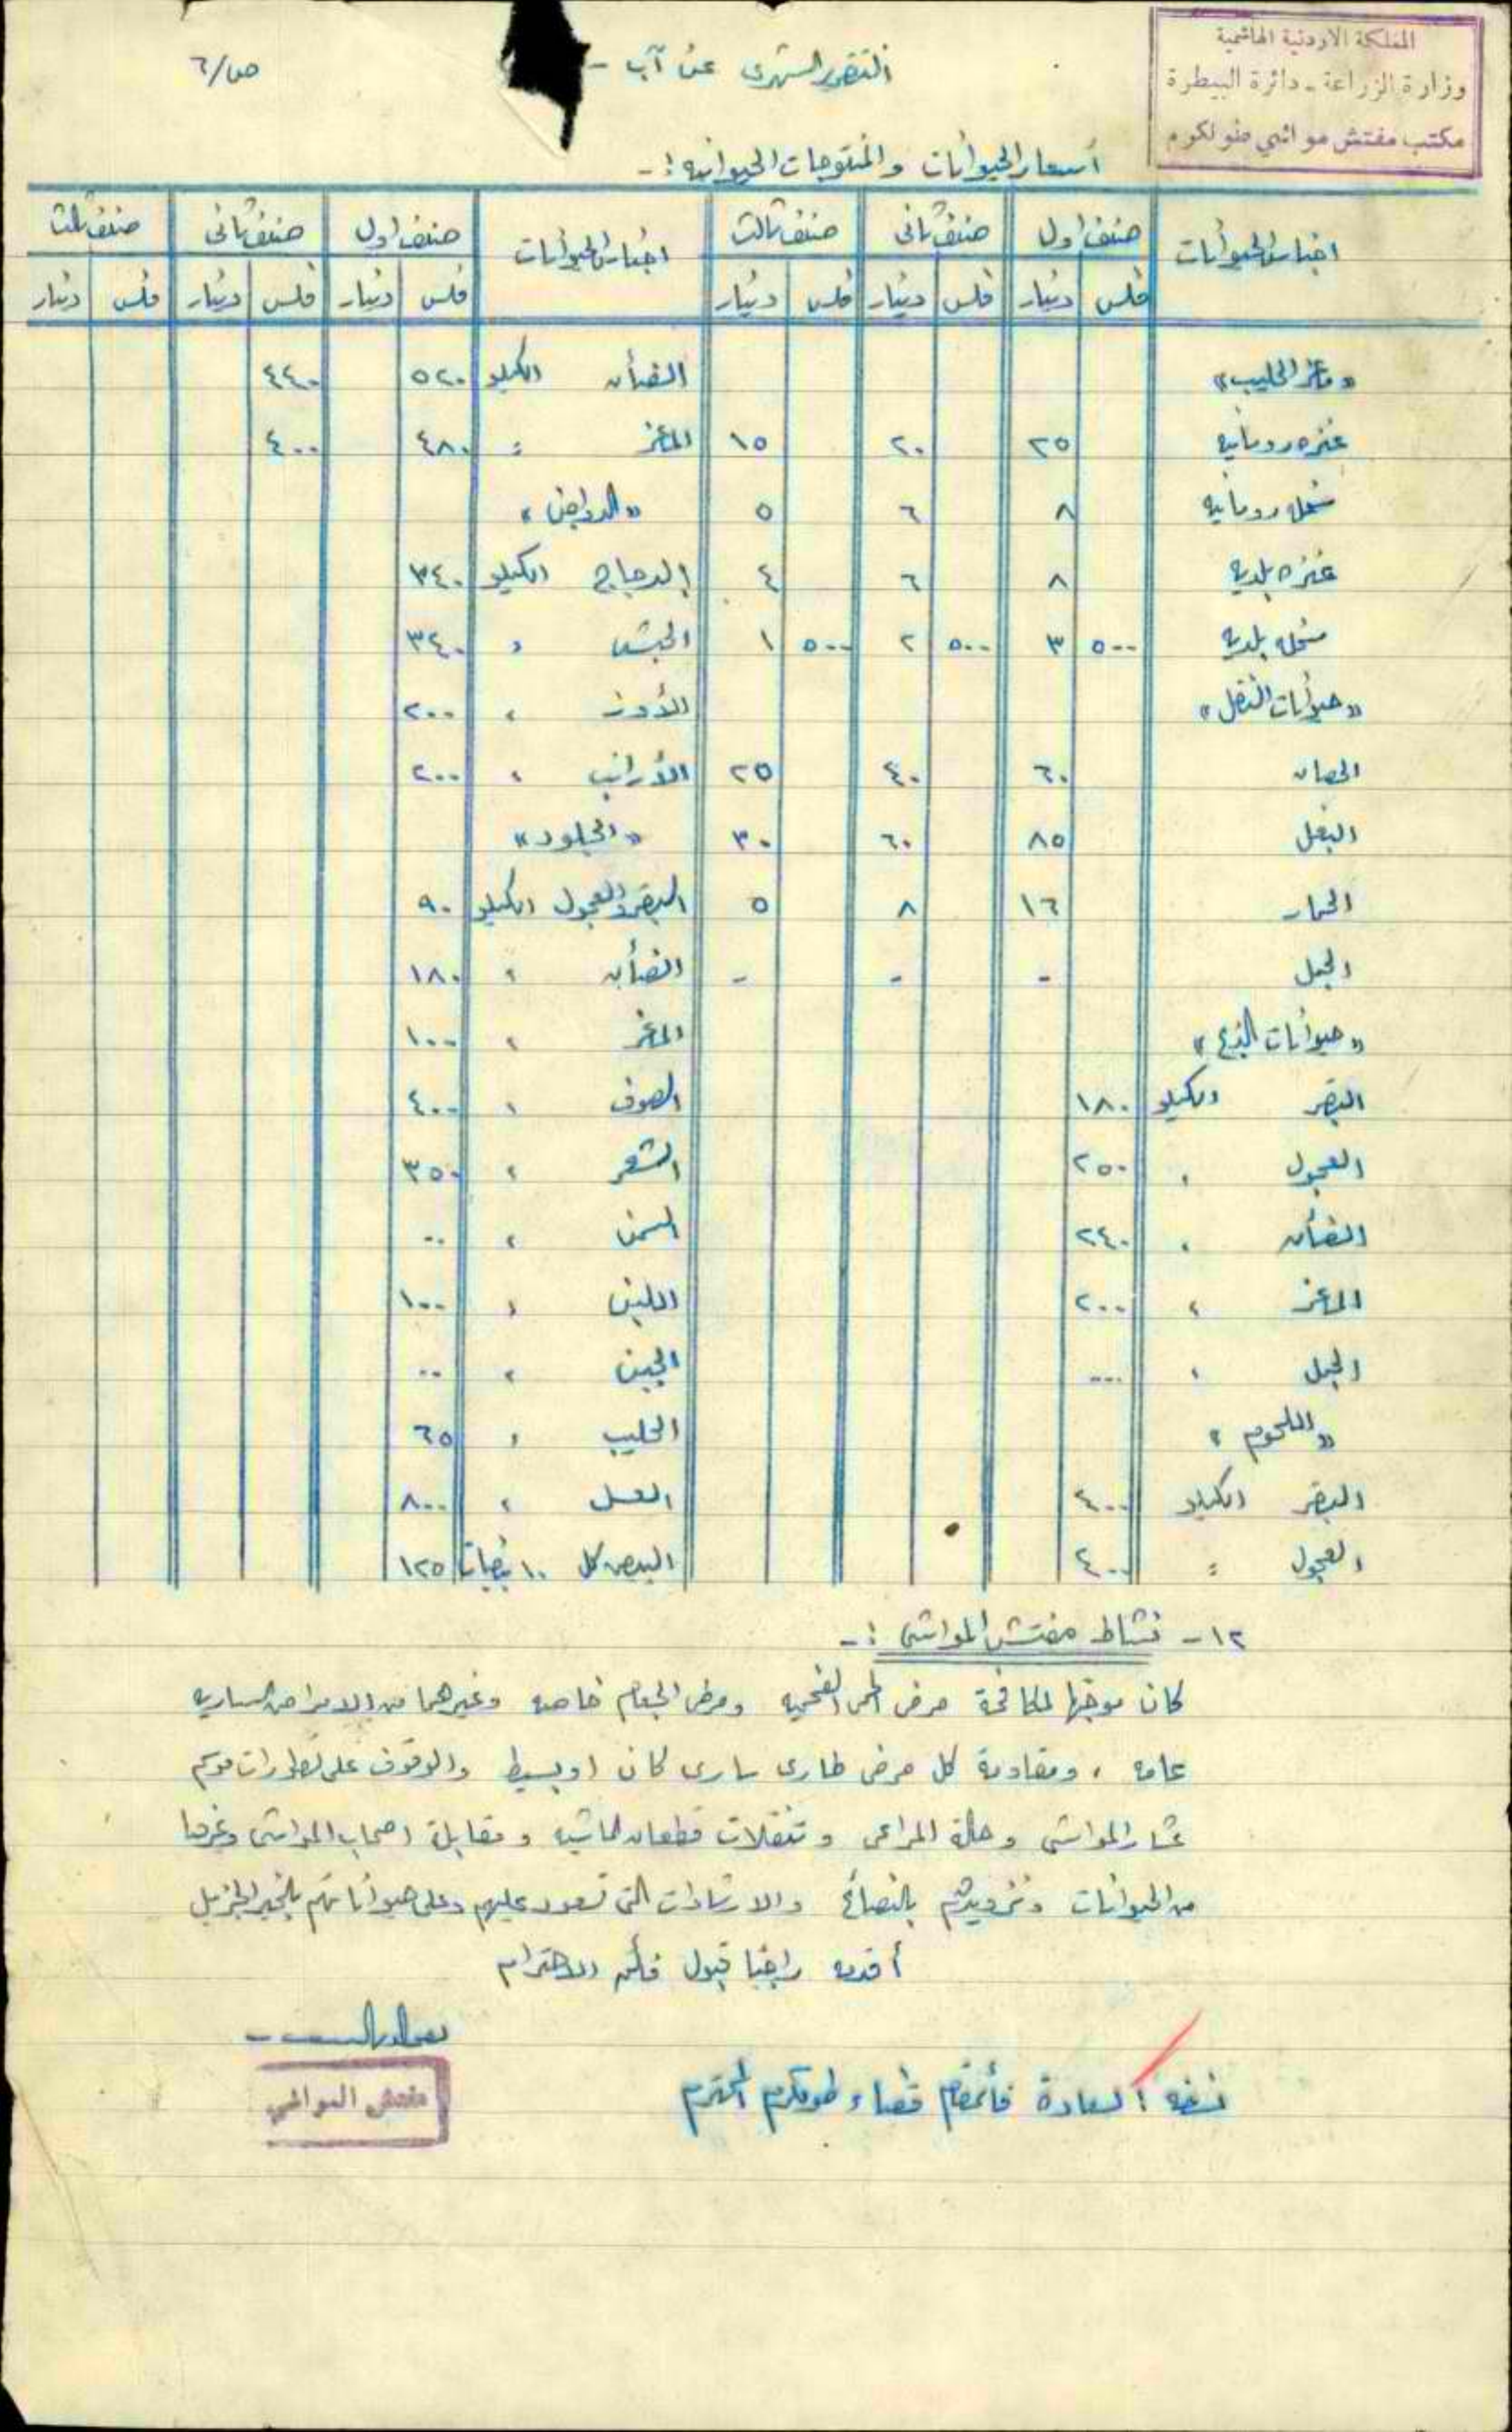 المملكة الاردنية الهاشمية
وزارة الزراعة - دائرة البيطرة
مكتب مفتش مواشي طولكرم
التقرير الشهري عن آب -
ص/٦
أسعار الحيوانات والمنتوجات الحيوانيه :-
اجناس الحيوانات | صنف اول | صنف ثاني | صنف ثالث | اجناس الحيوانات | صنف اول | صنف ثاني | صنف ثالث
فلس | دينار | فلس | دينار | فلس | دينار | فلس | دينار | فلس | دينار | فلس | دينار
«ماعز الحليب» | الضأن الكيلو ٥٢٠ | ٤٤٠
عنزه رومانيه | ٢٥ | ٢٠ | ١٥ | الماعز = ٤٨٠ | ٤٠٠
سخله رومانيه | ٨ | ٦ | ٥ | «الدواجن»
عنزه بلديه | ٨ | ٦ | ٤ | الدجاج الكيلو ٣٤٠
سخله بلديه | ٥٠٠ ٣ | ٥٠٠ ٢ | ٥٠٠ ١ | الحبش " ٣٤٠
«حيوانات النقل» | الأوز " ٢٠٠
الحصان | ٦٠ | ٤٠ | ٢٥ | الأرانب " ٢٠٠
البغل | ٨٥ | ٦٠ | ٣٠ | «الجلود»
الحمار | ١٦ | ٨ | ٥ | البقر والعجول الكيلو ٩٠
الجمل | - | - | - | الضأن " ١٨٠
«حيوانات الذبح» | الماعز " ١٠٠
البقر الكيلو ١٨٠ | الصوف " ٤٠٠
العجول " ٢٥٠ | الشعر " ٣٥٠
الضأن " ٢٤٠ | السمن " ٠٠
الماعز " ٢٠٠ | اللبن " ١٠٠
الجمل " ٠٠٠ | الجبن " ٠٠
«اللحوم» | الحليب " ٦٥
البقر الكيلو ٤٠٠ | العسل " ٨٠٠
العجول = ٤٠٠ | البيض كل ١٠ بيضات ١٢٥
١٢- نشاط مفتش المواشي :-
كان موجها لمكافحة مرض الحمى الفحميه ومرض الجمام خاصه وغيرهما من الامراض الساريه
عامه ، ومقاومة كل مرض طارئ ساري كان او بسيط والوقوف على تطورات موسم
عشار المواشي وحالة المراعي وتنقلات قطعان الماشيه ومقابلة اصحاب المواشي وغيرها
من الحيوانات وتزويدهم بالنصائح والارشادات التي تعود عليهم وعلى حيواناتهم بالخير الجزيل
أقدمه راجيا قبول فائق الاحترام
مفتش المواشي
نسخه : لسعادة قائمقام قضاء طولكرم المحترم